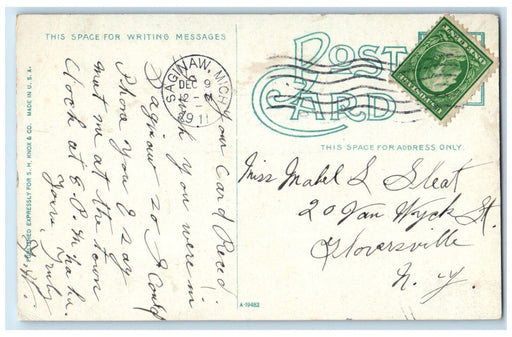 THIS SPACE FOR WRITING MESSAGES
POST
CARD
THIS SPACE FOR ADDRESS ONLY.
SAGINAW, MICH.
DEC 9
1911
Your Card Recd.
Wish you were in
Saginaw so I could
Phone you & say
meet me at the town
clock at 8. P. M. Ha ha.
Yours Truly
Miss Mabel L Sleat
20 Van Wyck St.
Gloversville
N. Y
A-19482
PRODUCED EXPRESSLY FOR S. H. KNOX & CO. MADE IN U. S. A.